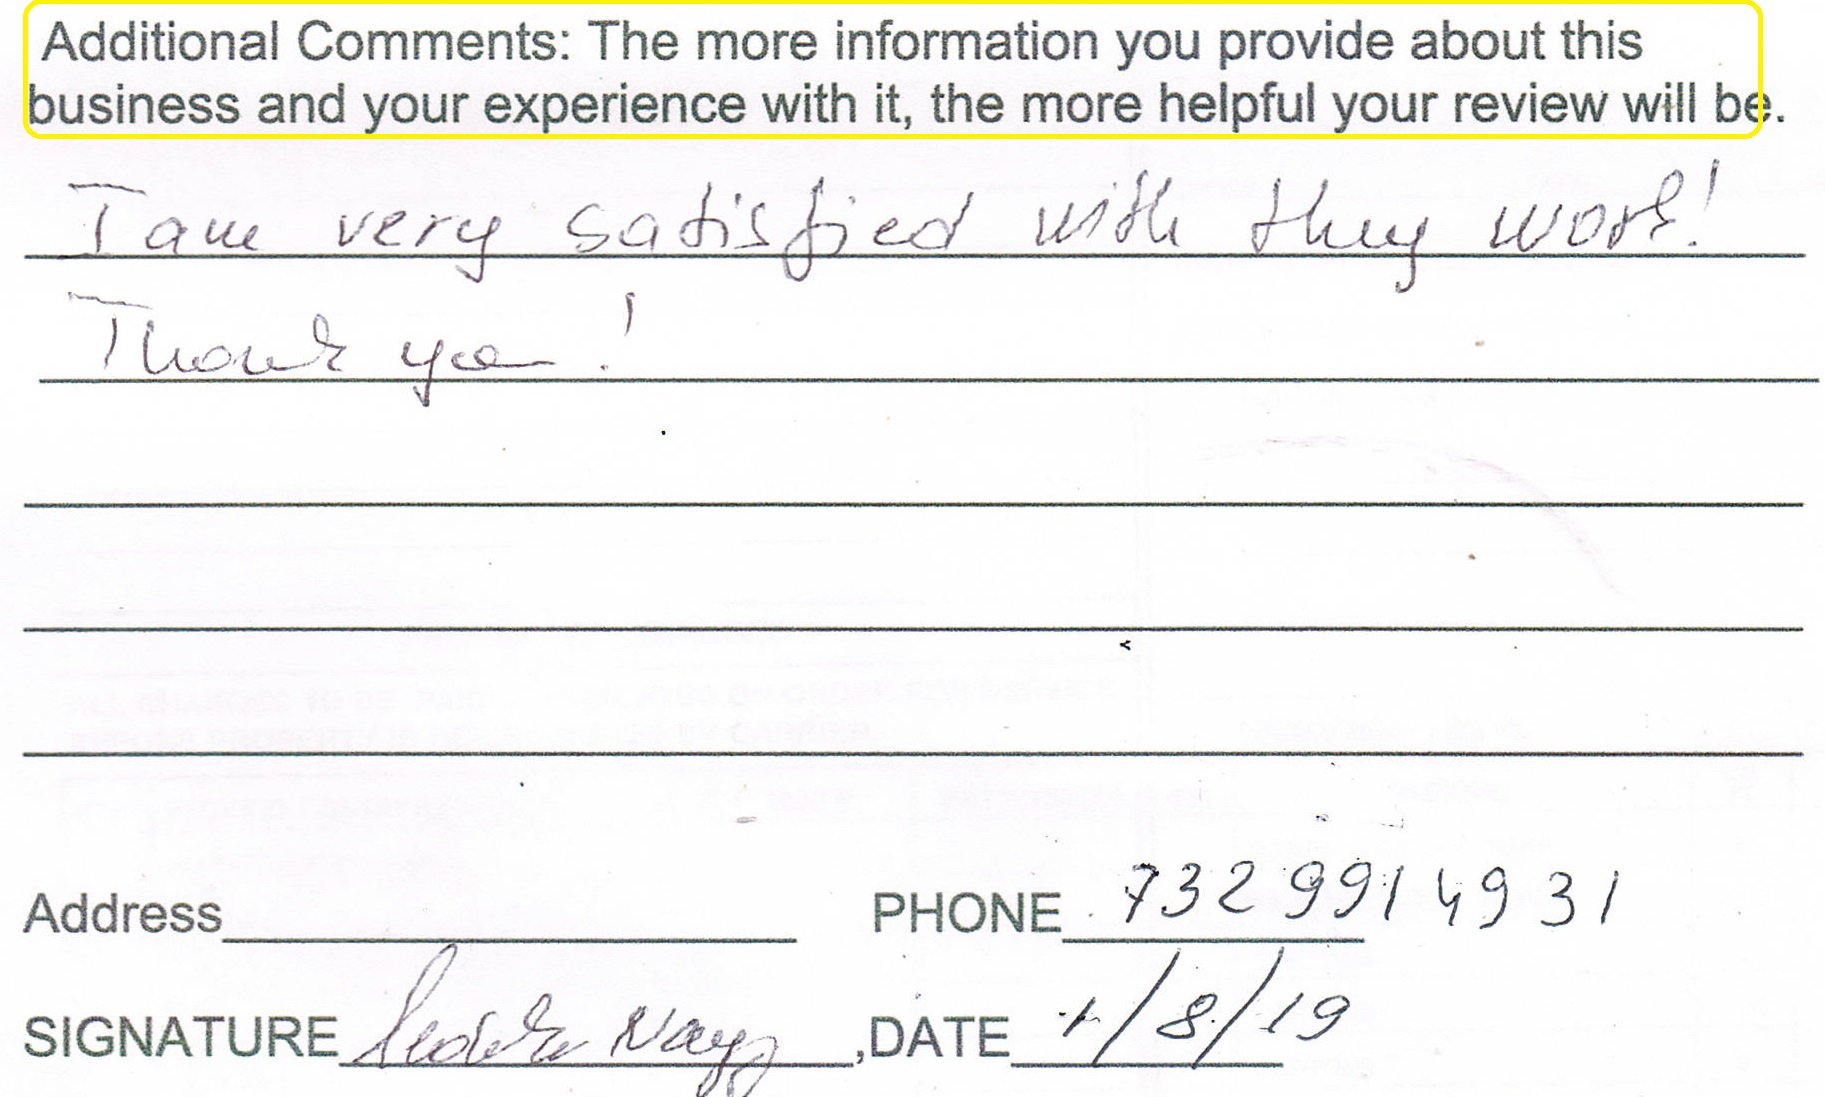 Additional Comments: The more information you provide about this
business and your experience with it, the more helpful your review will be.
I am very satisfied with they work!
Thank you!
Address PHONE 7329914931
SIGNATURE ,DATE 1/8/19